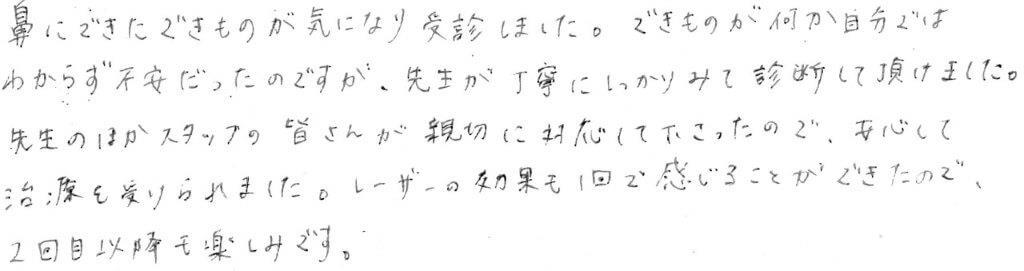 鼻にできたできものが気になり受診しました。できものが何か自分では
わからず不安だったのですが、先生が丁寧にしっかりみて診断して頂けました。
先生のほかスタッフの皆さんが親切に対応して下さったので、安心して
治療を受けられました。レーザーの効果も1回で感じることができたので、
2回目以降も楽しみです。